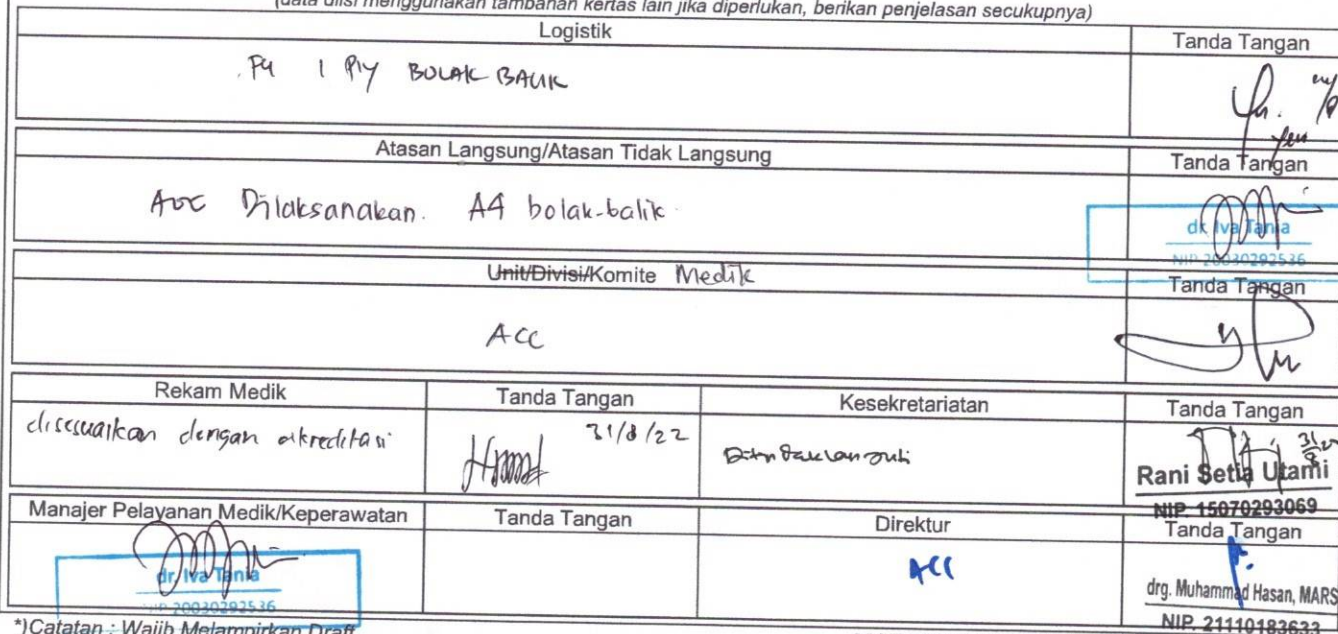 (data diisi menggunakan tambahan kertas lain jika diperlukan, berikan penjelasan secukupnya)
Logistik Tanda Tangan
F4 1 Ply BOLAK BALIK
Atasan Langsung/Atasan Tidak Langsung Tanda Tangan
Dilaksanakan. A4 bolak-balik
dr. Iva Tania
NIP 20030292536
Unit/Divisi/Komite Medik Tanda Tangan
ACC
Rekam Medik Tanda Tangan Kesekretariatan Tanda Tangan
disesuaikan dengan akreditasi 31/8/22 Ditindaklanjuti
Rani Setia Utami
NIP. 15070293069
Manajer Pelayanan Medik/Keperawatan Tanda Tangan Direktur Tanda Tangan
dr. Iva Tania ACC
NIP 20030292536
drg. Muhammad Hasan, MARS
NIP. 21110183633
*)Catatan : Wajib Melampirkan Draft